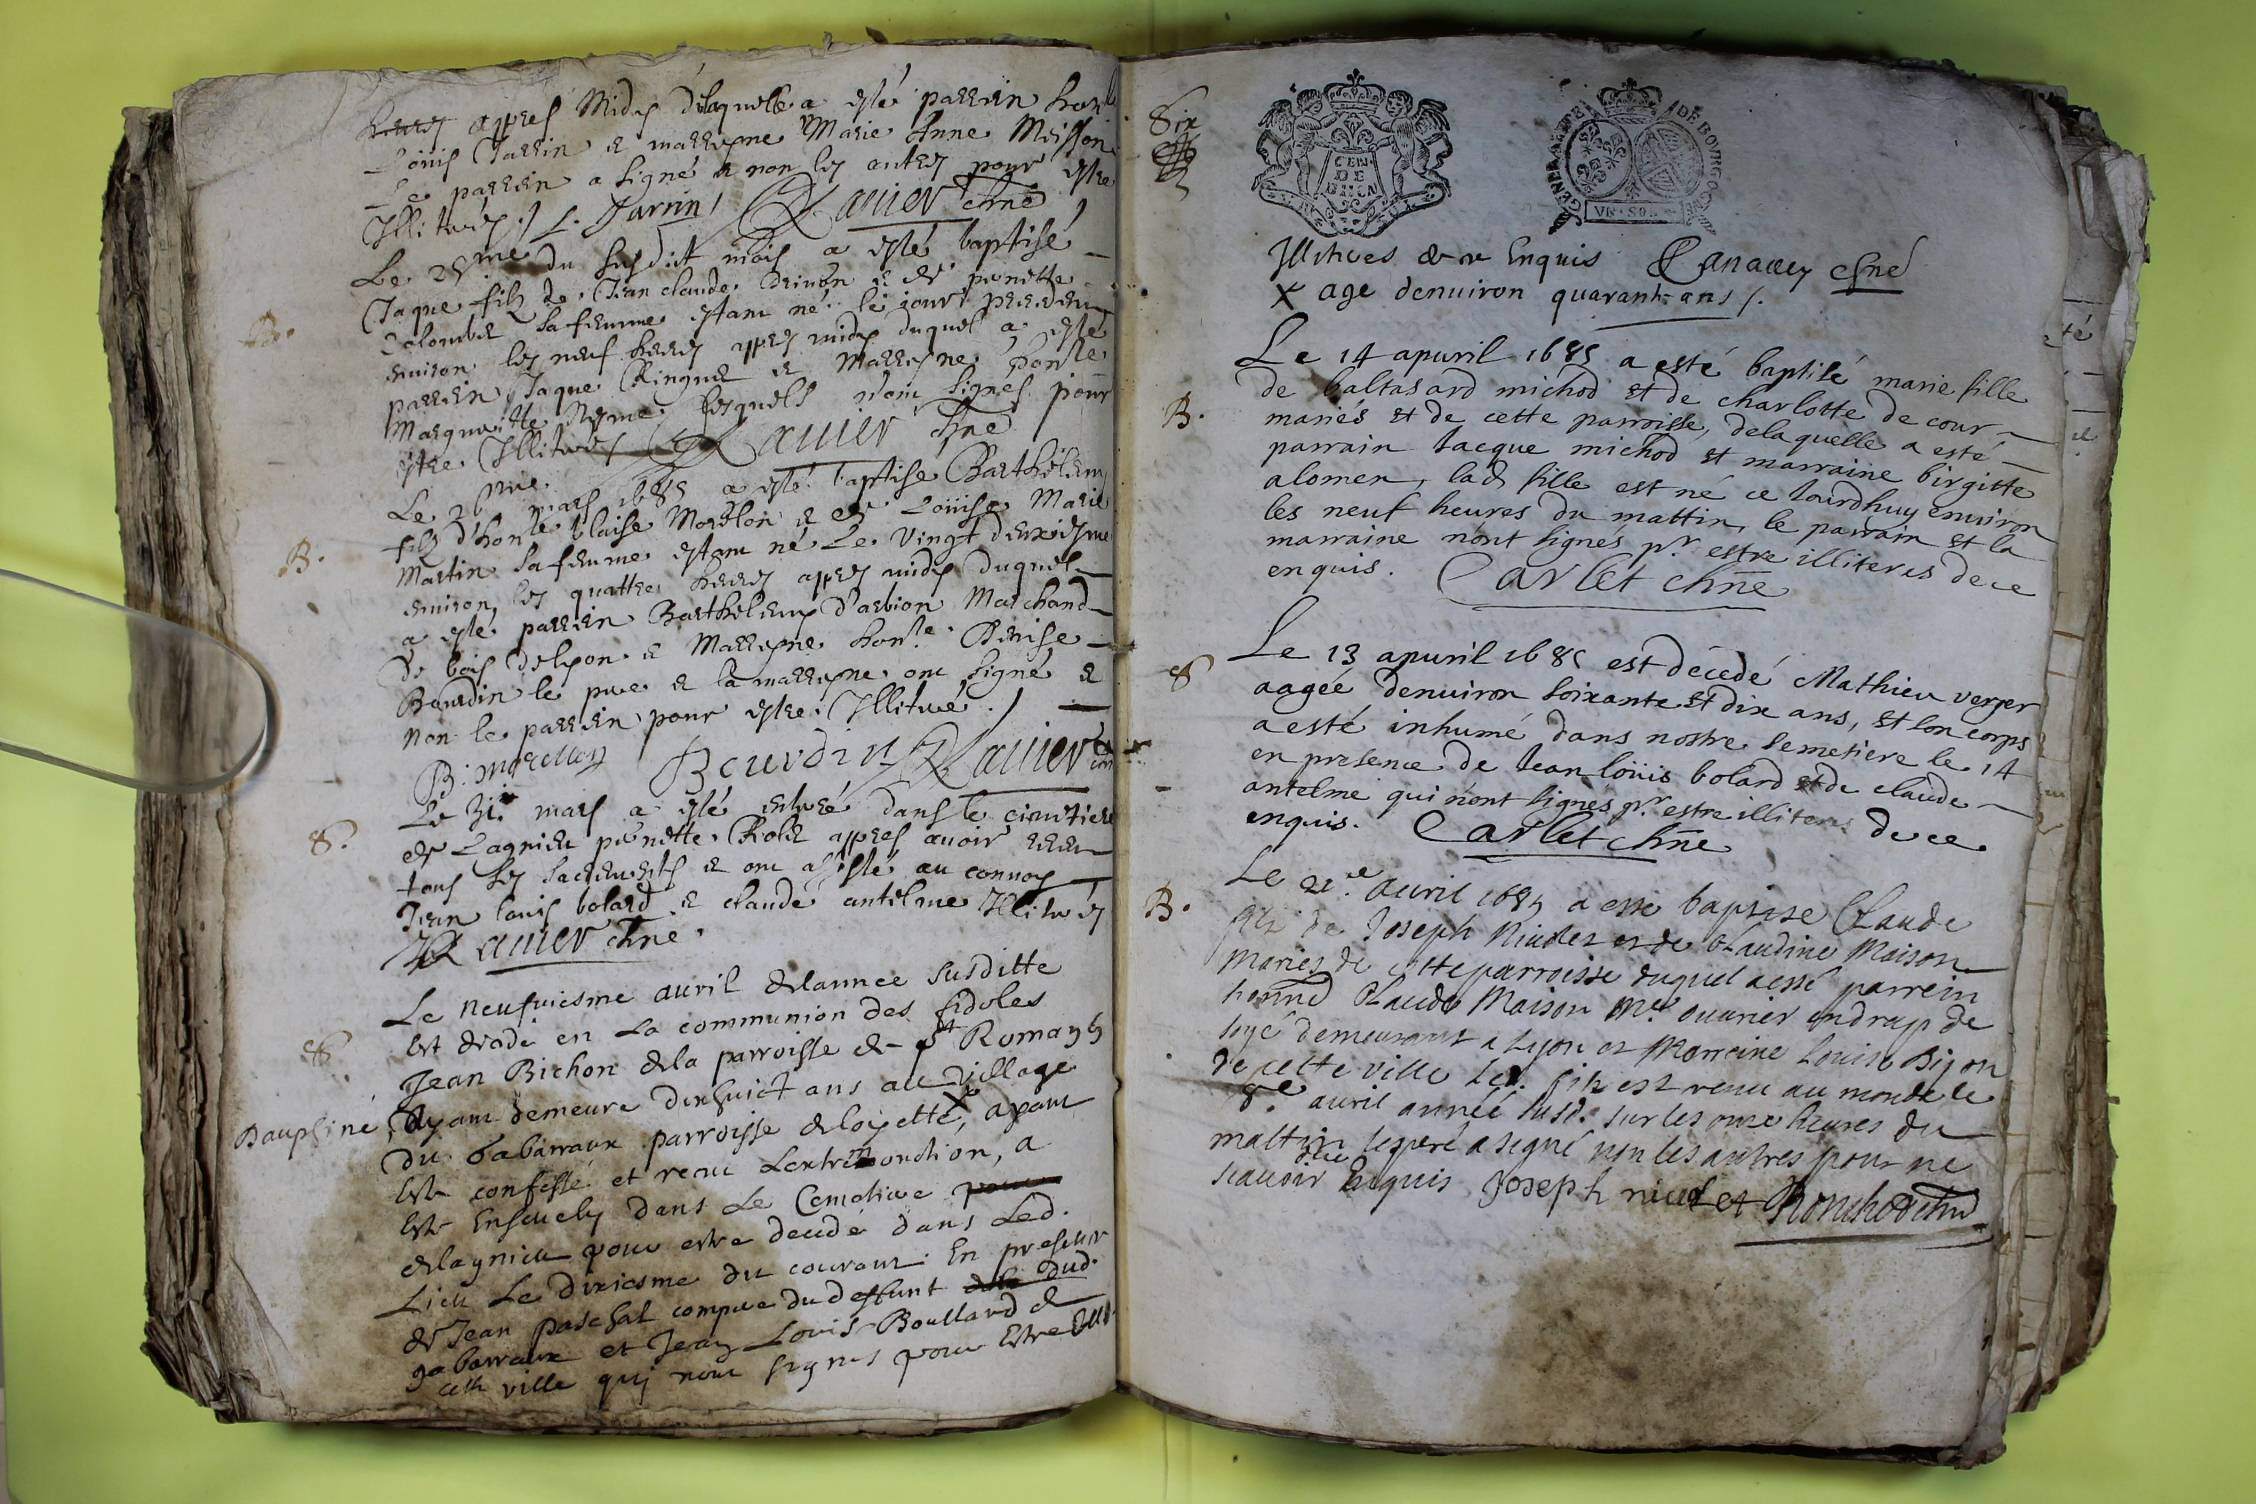 heures appres Midy delaquelle a esté parrein hon
Louis Jarrin & marreyne Marie Anne Moisson
Le parrein a signé & non les autres pour estre
Illiterés./ L. Jarrin / Ravier chne
Le 25me du susdict mois a esté baptisé
B.
Jaque filz de Jean claude & de pernette
Colombe sa femme estant né le jour
environ les neuf heures appres midy duquel a esté
parrein Jaque Ringuet & Marreyne honle
Marguerite lesquels n'ont signés pour
estre Illiterés Ravier chne
Le 26me mars 1685 a esté baptisé Barthelemy
B.
filz d'honle blaise Morellon & de Loüise Marie
Martin sa femme estant né Le vingt deuxiesme
environ les quattre heures appres midy duquel
a esté parrein Barthelemy d'arbion Marchand
de bois delyon & Marreyne honle Denise
Bourdin le pere & la marreyne ont signé &
non le parrein pour estre Illiteré ./
B. morellon Bourdin Ravier
Le 31e mars a esté enterré dans le cimetiere
S.
de Lagnieu pernette Role appres avoir receu
tous les sacrements & ont assisté au convoy
Jean louis bolard & claude antelme Illiterés
Ravier chne.
Le neufviesme avril delannee susditte
S
Est decedé en La communion des fidoles
Jean Bichon dela parroisse de St Romans
Dauphiné, Ayant demeuré dixhuict ans au village
du Gabarraux parroisse deloyette, X ayant
Esté confessé et receu Lextremonction, a
Esté Ensevely dans Le Cemetiere pour
delagnieu pour estre decedé dans Led.
Lieu Le dixiesme du courant En presence
de Jean paschal compere du deffunt dela dud.
gabarraux et Jean Louis Boullard de
cette ville qui n'ont signes pour Estre Illi
Six
CEN
DE
GENERALITE DE BOURGOGNE
VN·SO
Illiteres de ce Enquis chné
X age denuiron quarante ans /.
Le 14 apuril 1685 a esté baptisé marie fille
de baltasard michod et de charlotte de cour
B.
mariés et de cette parroisse, delaquelle a esté
parrain Jacque michod et marraine birgitte
alomen, lad. fille est né ce Jourdhuy environ
les neuf heures du mattin, le parrain et la
marraine n'ont signés pr. estre illiteres dece
enquis. Carlet chne
Le 13 apuril 1685 est decedé Mathieu verger
S
aagéé denuiron soixante et dix ans, et son corps
a esté inhumé dans nostre semetiere le 14
en presence de Jean loüis bolard et de claude
antelme qui n'ont signés pr. estre illiteres dece
enquis. Carlet chne
Le 21e. avril 1685 a esté baptise Claude
B.
filz de Joseph Niudet et de Claudine Maison
mariés de cette parroisse duquel a esté parrein
honné Claude Maison Me ouvrier en drap de
soyé demeurant a Lyon et Marreine Louise Bijon
de cette ville led. filz est venu au monde le
8e. avril année susd. sur les onze heures du
mattin le peré a signé non les autres pour ne
scavoir Enquis Joseph niudet